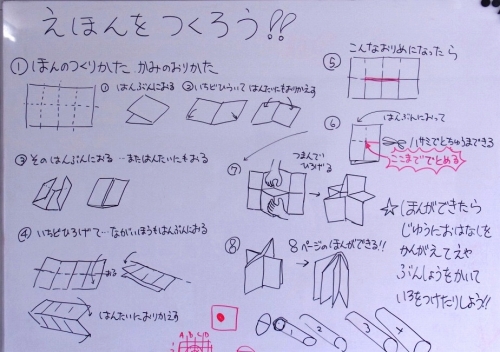 えほんを つくろう!!
① ほんのつくりかた かみのおりかた
① はんぶんにおる
② いちどひらいて はんたいにもおりかえす
③ そのはんぶんにおる…またはんたいにもおる
④ いちどひろげて…ながいほうもはんぶんにおる
おる
はんたいにおりかえす
⑤ こんなおりめになったら
⑥ はんぶんにおって
ハサミでとちゅうまできる
ここまででとめる
⑦ つまんで
ひろげる
⑧ 8ページのほんができる!!
☆ ほんができたら
じゆうにおはなしを
かんがえてえや
ぶんしょうをかいて
いろをつけたりしよう!!
A B C D
1 2 3 4